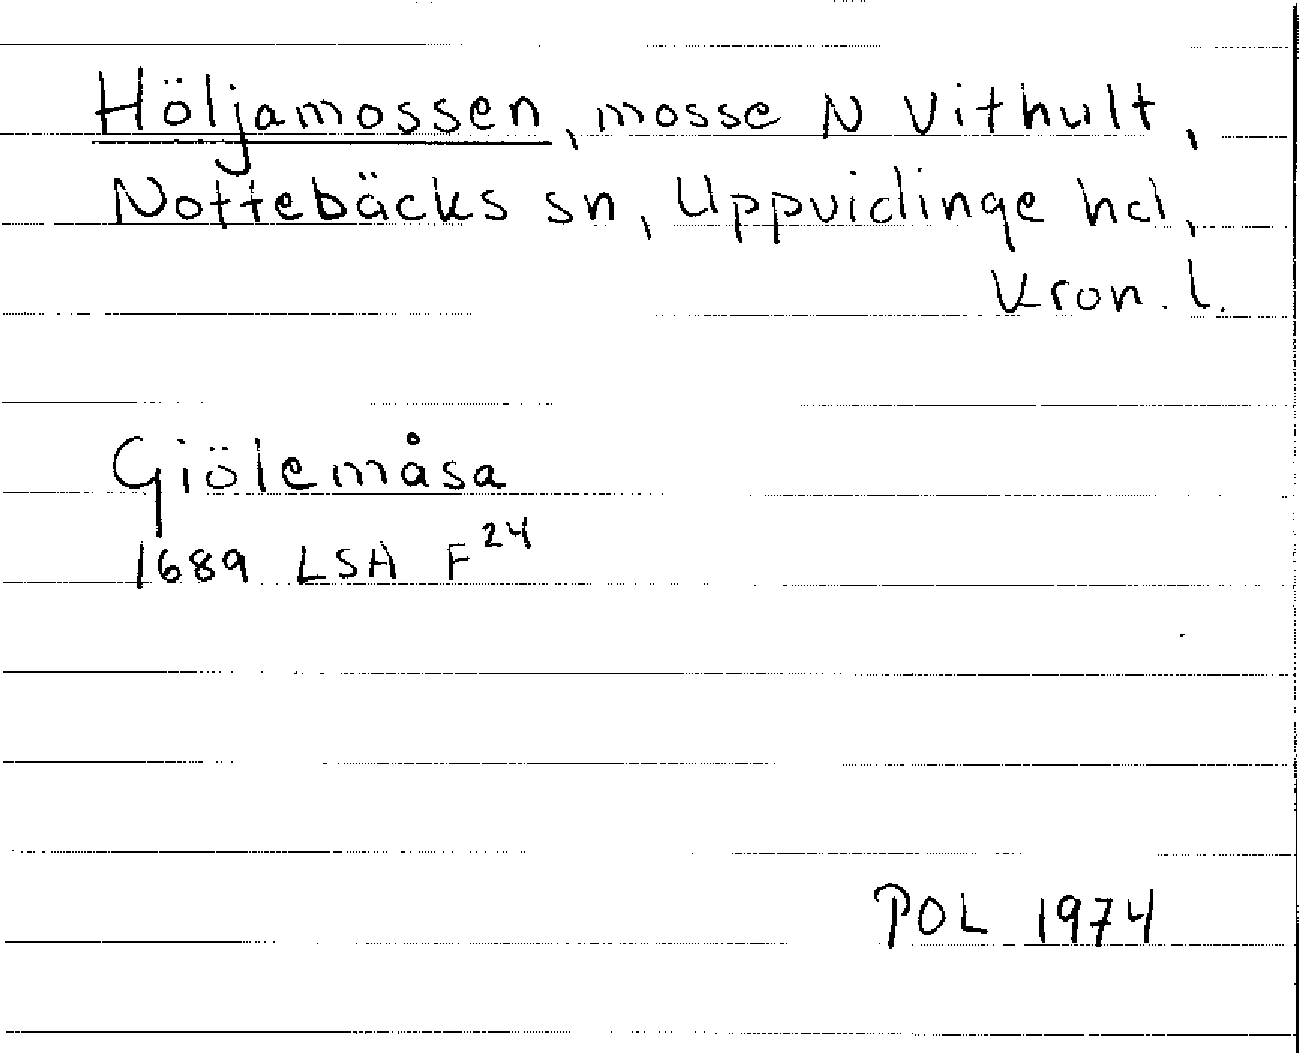 Höljamossen, mosse N Vithult,
Nottebäcks sn, Uppvidinge hd,
Kron. l.
Giölemåsa
1689 LSA F 24
POL 1974